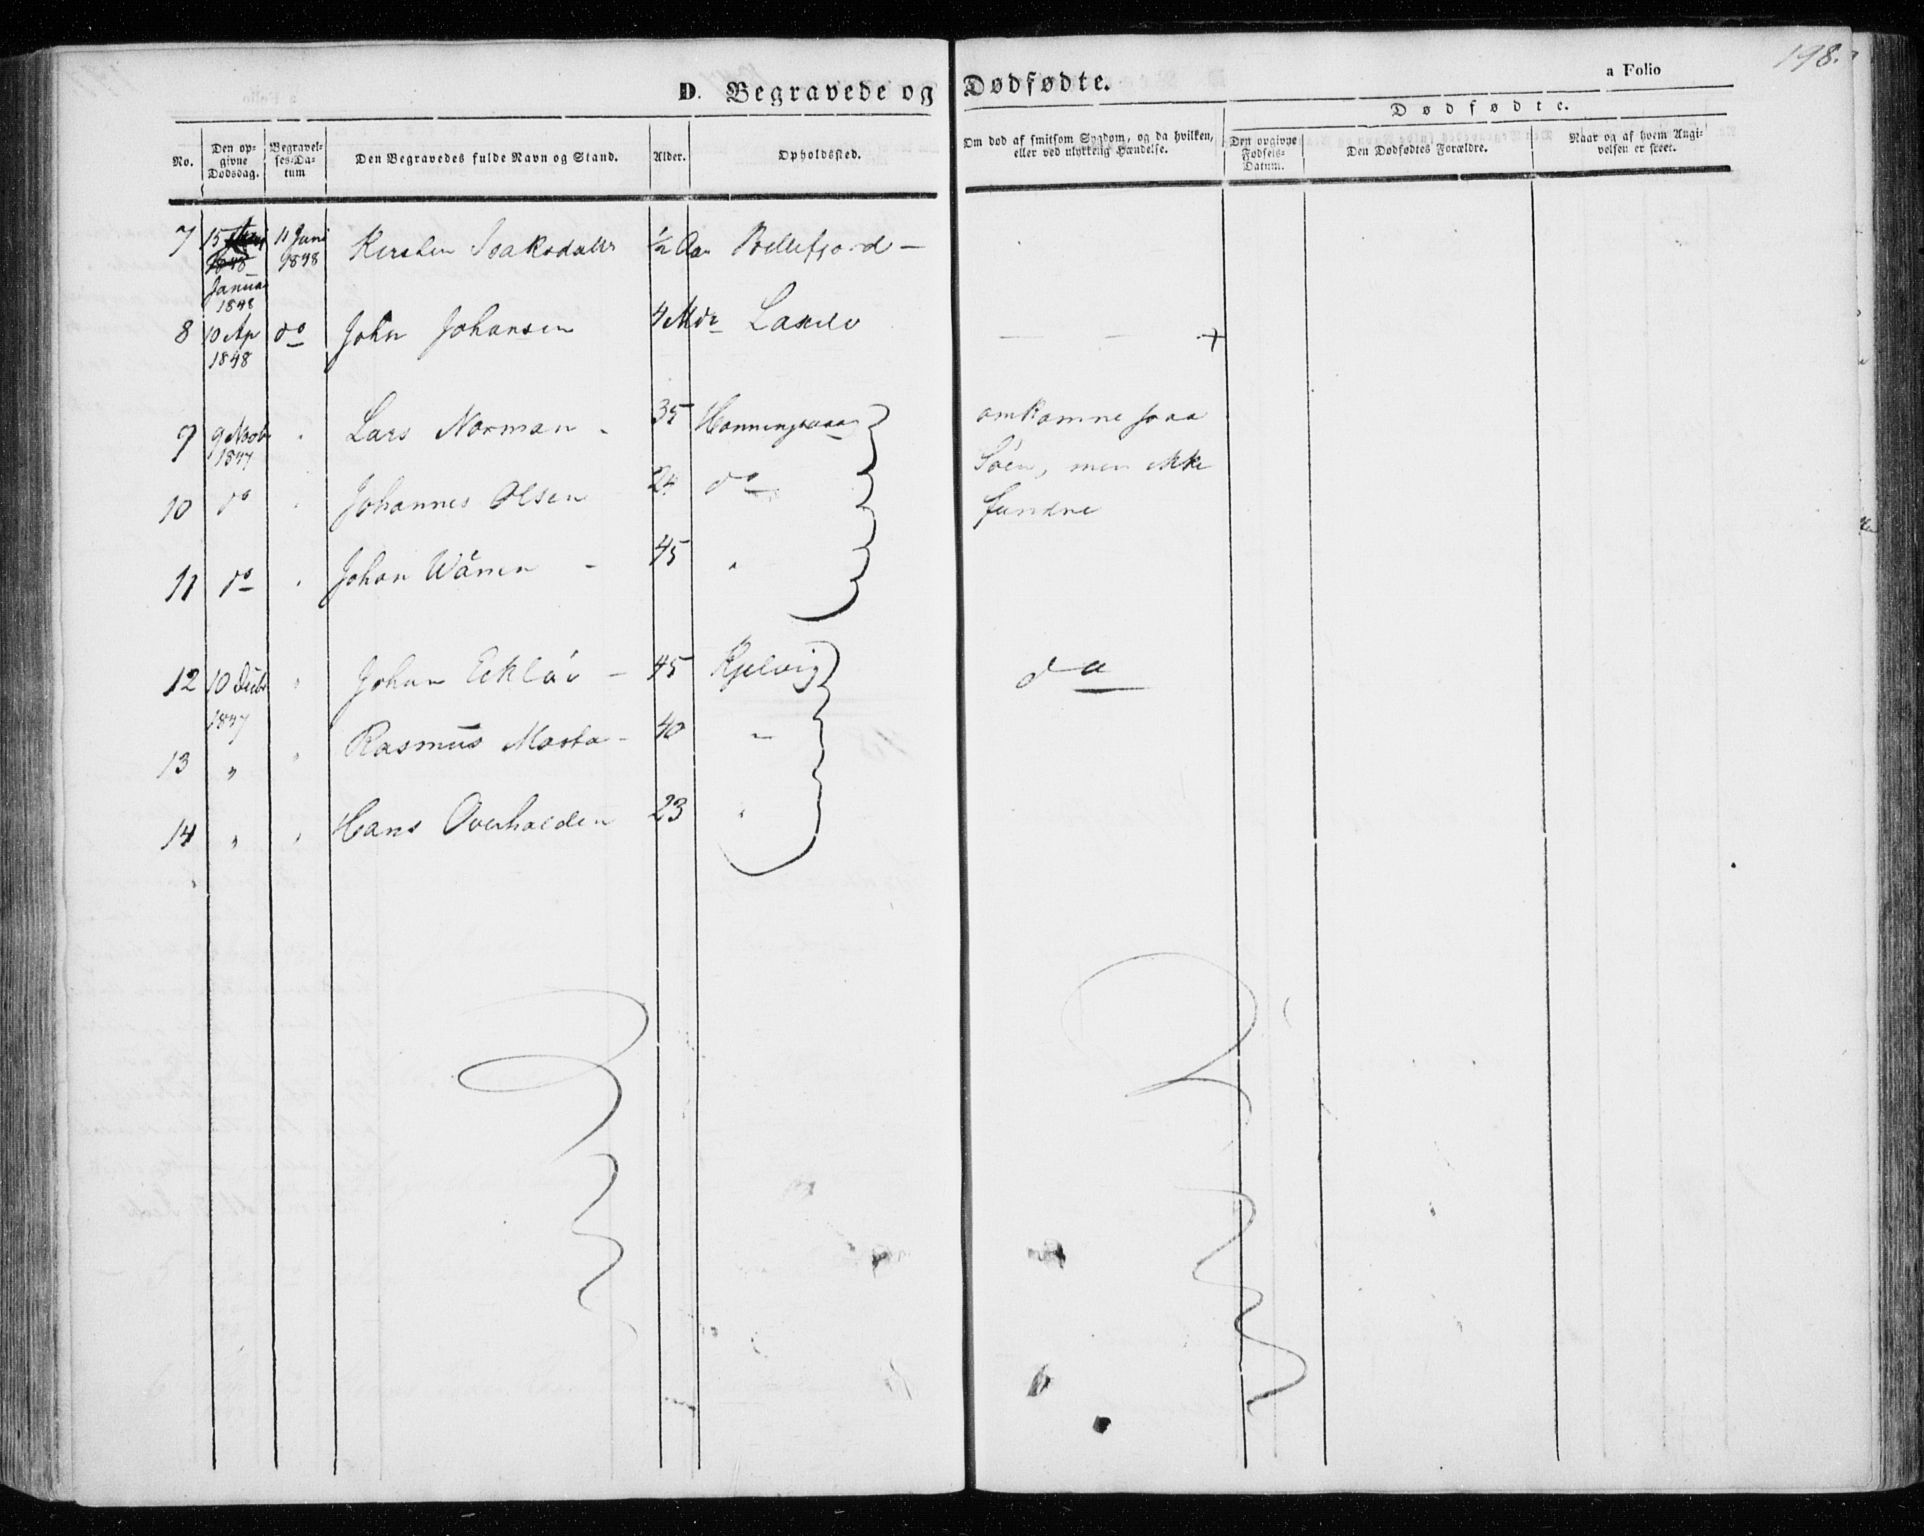 198.
D. Begravede og Dødfødte.
a Folio
No.
Den opgivne Dødsdag.
Begravelses-Datum
Den Begravedes fulde Navn og Stand.
Alder.
Opholdssted.
Om død af smitsom Sygdom, og da hvilken, eller ved ulykkelig Hændelse.
Dødfødte.
Den opgivne Fødsels-Datum.
Den Dødfødtes Forældre.
Naar og af hvem Angivelsen er skeet.
7 15 Januar 1848 11 Juni 1848 Kirsten Isaksdatter ½ Aar Bellefjord –
8 10 Ap 1848 do John Johansen 4 Mdr Laxelv — - +
9 9 Novb 1847 " Lars Norman - 35 Honningvaag omkomne paa
Söen, men ikke
10 do " Johannes Olsen 24 do fundne
11 do " Johan - 45 "
12 10 Decb 1847 " Johan – 45 Kjelvig do
13 " " Rasmus - 40 "
14 " " Hans Overhalden 23 "